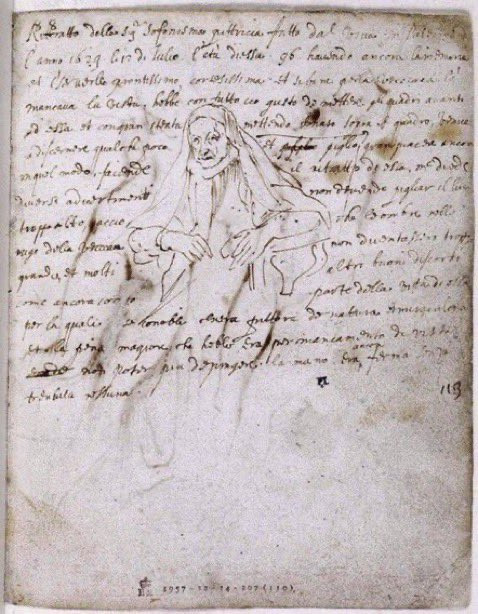 Rittratto della Sigra Sofonisma pittricia fatto dal vivo in Palermo
l'anno 1624 li 12 di Julio l'età di essa 96 havendo ancora la memoria
et il serverllo prontissimo, cortesissima et sebene per la vecciaia la
mancava la vista, hebbe con tutto cio gusto de mettere gli quadri avanti
ad essa et con gran stenta mettendo il naso sopra il quadro, venne
a discernere qualche poco et piglio gran piacere ancora
in quel modo, facendo il ritratto de essa, me diede
diversi advertimenti non dovendo pigliar il lume
troppo alto, accio che l'ombre nelle
ruge della vecciaia non diventassino troppo
grande, et molti altri buoni discorsi
come ancora parte della vita di essa
per la quale se conobbe pittora de natura et miraculosa
et la pena magiore che hebbe era per mancamento di vista
non poter piu depingere, la mano era ancora ferma senza
tremula nessuna
115
1957-12-14-207 (110)